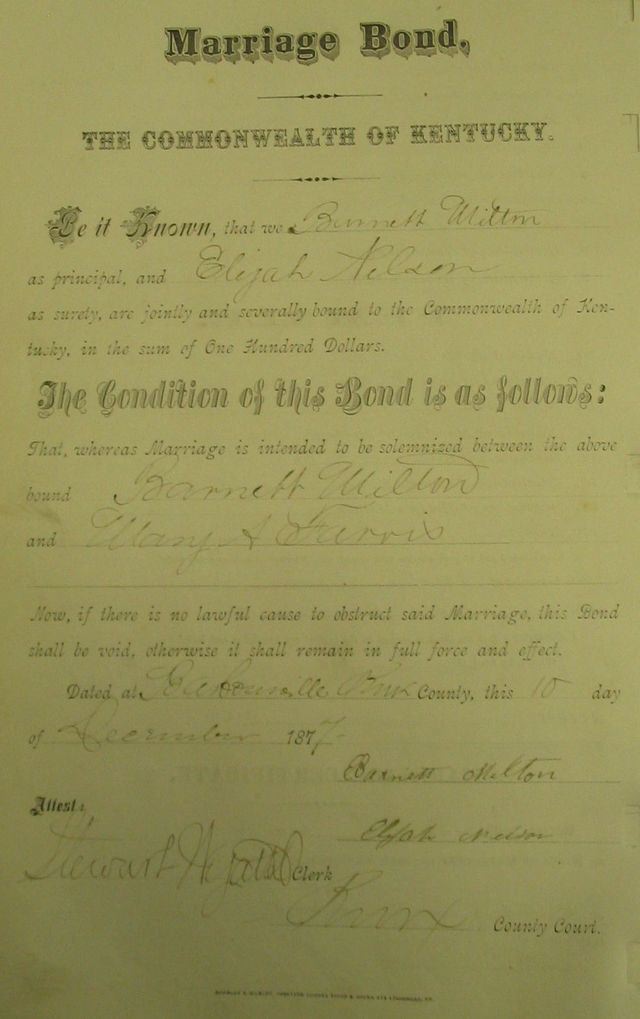 Marriage Bond,
THE COMMONWEALTH OF KENTUCKY.
Be it Known, that we Burnett Milton
as principal, and Elijah Nelson
as surety, are jointly and severally bound to the Commonwealth of Ken-
tucky, in the sum of One Hundred Dollars.
The Condition of this Bond is as follows:
That, whereas Marriage is intended to be solemnized between the above
bound Barnett Milton
and Mary A Farris
Now, if there is no lawful cause to obstruct said Marriage, this Bond
shall be void, otherwise it shall remain in full force and effect.
Dated at Knox County, this 10 day
of December 1877
Barnett Milton
Attest:
Elijah Nelson
Stewart Clerk
Knox County Court.